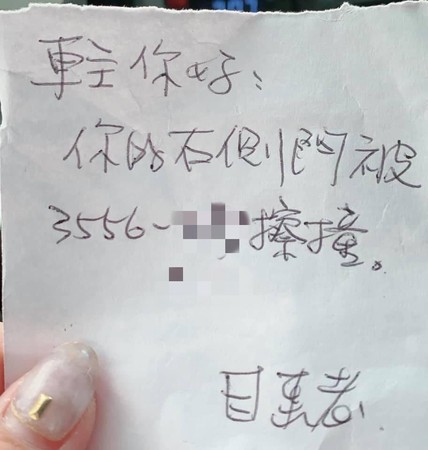 車主你好：
你的右側門被
3556-擦撞。
目擊者